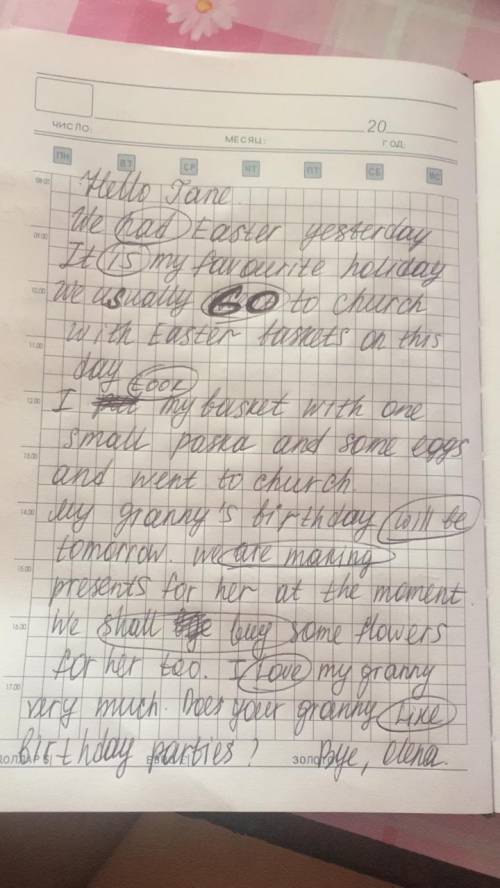 20
ЧИСЛО:
МЕСЯЦ:
ГОД:
ПН ВТ СР ЧТ ПТ СБ ВС
08.00
Hello Jane.
We had Easter yesterday
09.00
It is my favourite holiday
10.00
We usually GO to church
with Easter baskets on this
11.00
day
I took my basket with one
12.00
small paska and some eggs
13.00
and went to church.
My granny's birthday will be
14.00
tomorrow. we are making
15.00
presents for her at the moment
We shall buy some flowers
16.00
for her too. I Love my granny
17.00
very much. Does your granny Like
birthday parties? Bye, Olena.